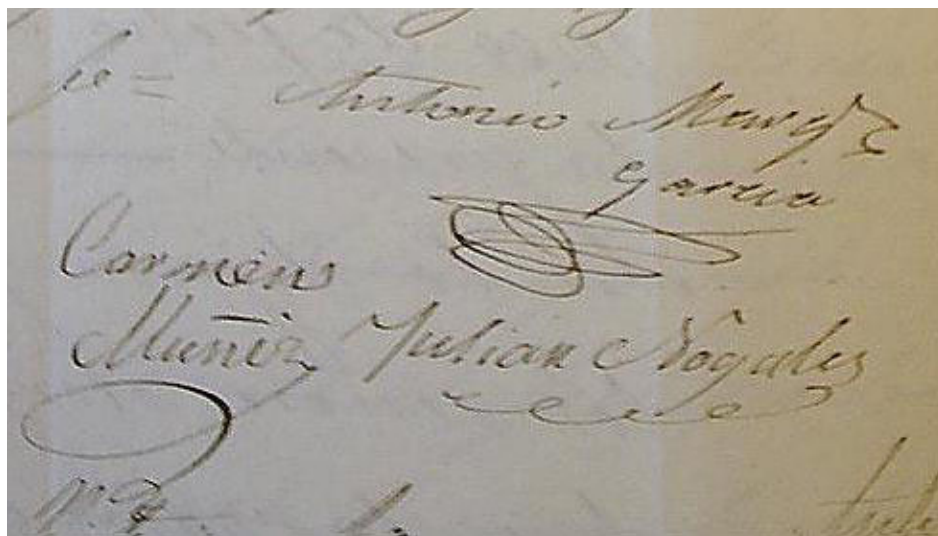 Antonio Marq̃z
Garcia
Carmen
Muñiz Julian Nogales